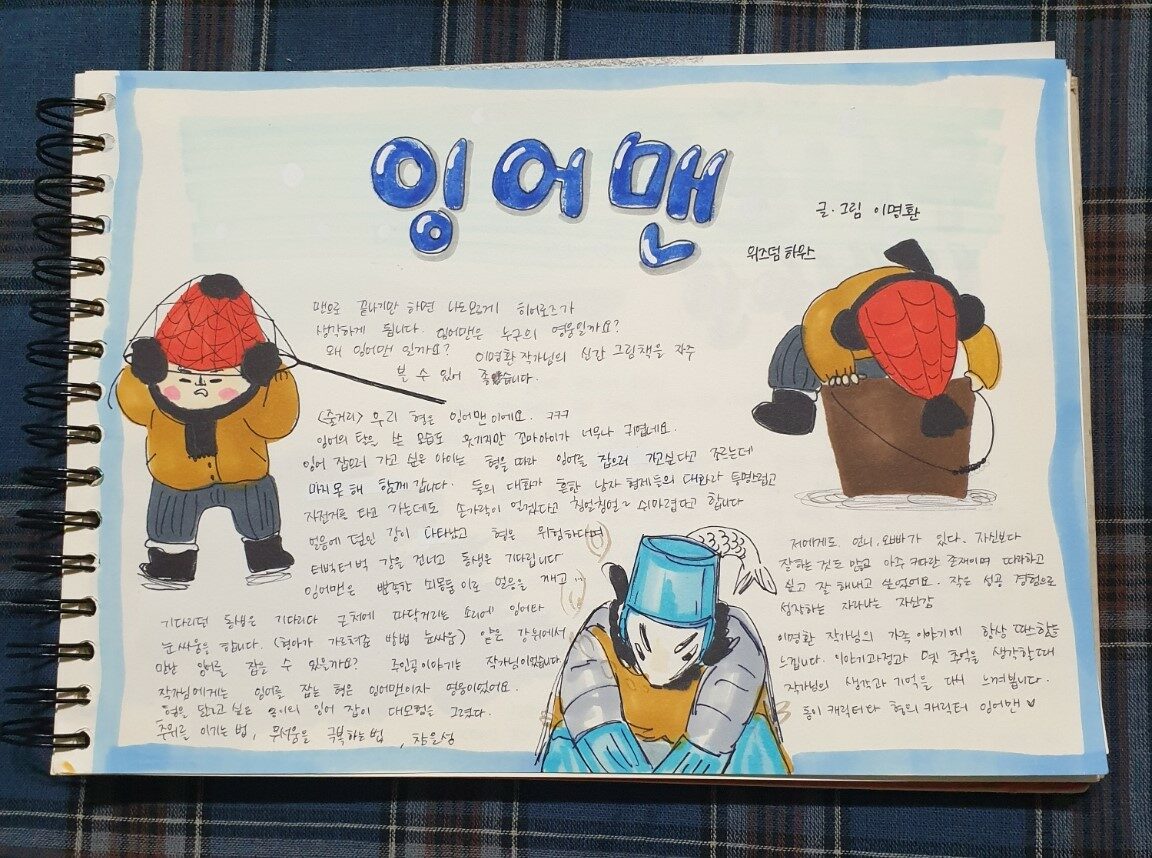 잉어맨
글·그림 이명환
위즈덤하우스
맨으로 끝나기만 하면 나도모르게 히어로즈가
생각하게 됩니다. 잉어맨은 누구의 영웅일까요?
왜 잉어맨 일까요? 이명환작가님의 신간 그림책을 자주
볼 수 있어 좋았습니다.
<줄거리> 우리 형은 잉어맨이에요. ㅋㅋㅋ
잉어의 탈을 쓴 모습도 웃기지만 꼬마아이가 너무나 귀엽네요.
잉어 잡으러 가고 싶은 아이는 형을 따라 잉어를 잡으러 가고싶다고 조르는데
마지못해 함께 갑니다. 둘의 대화가 흔한 남자 형제들의 대화라 투명스럽고
자전거를 타고 가는데도 손가락이 얼겠다고 칭얼칭얼~ 쉬마렵다고 합니다
얼음에 덮인 강이 나타났고 형은 위험하다며
터벅터벅 강을 건너고 동생은 기다립니다
잉어맨은 뾰족한 쇠몽둥이로 얼음을 깨고
기다리던 동생은 기다리다 근처에 파닥거리는 소리에 잉어와
눈싸움을 합니다. (형아가 가르쳐준 방법 눈싸움) 얕은 강위에서
만난 잉어를 잡을 수 있을까요? 주인공이야기는 작가님이었습니다
작가님에게는 잉어를 잡는 형은 잉어맨이자 영웅이었어요.
형을 닮고 싶은 동이의 잉어 잡이 대모험을 그렸다.
추위를 이기는 법, 무서움을 극복하는법, 참을성
저에게도 언니, 오빠가 있다. 자신보다
잘하는 것도 많고 아주 커다란 존재이며 따라하고
싶고 잘 해내고 싶었어요. 작은 성공 경험으로
성장하는 자라나는 자신감
이명환 작가님의 가족 이야기에 항상 따스함을
느낍니다. 이야기과정과 옛 추억을 생각할때
작가님의 생각과 기억을 다시 느껴봅니다.
동이 캐릭터와 형의 캐릭터 잉어맨